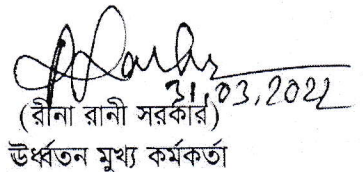 31.03.2022
(রীনা রানী সরকার)
ঊর্ধ্বতন মুখ্য কর্মকর্তা